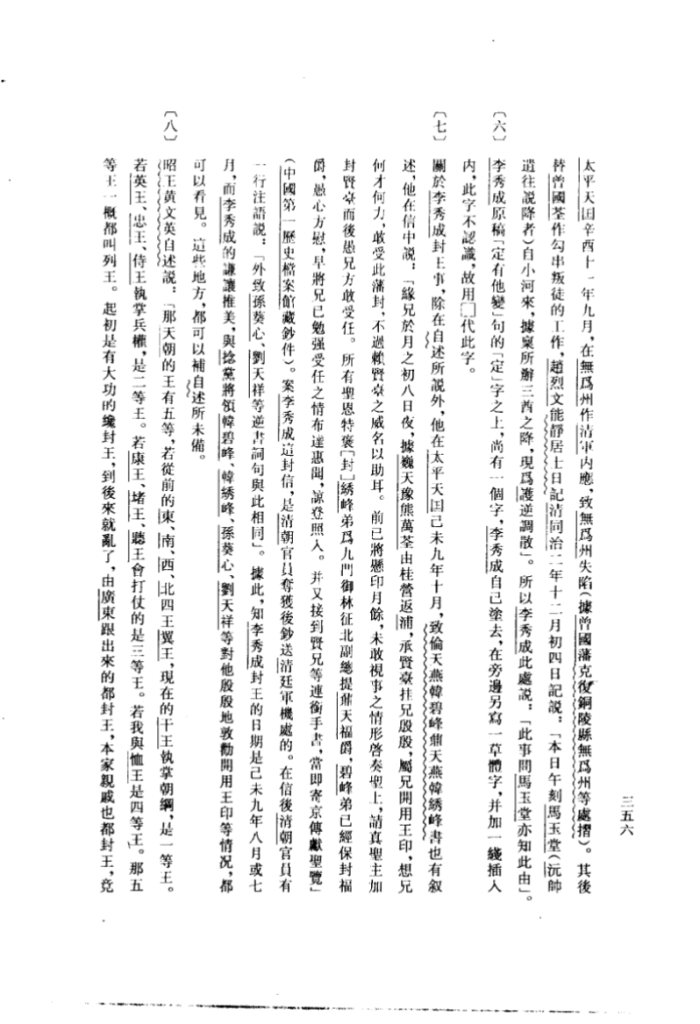 三五六
太平天囯辛酉十一年九月，在無爲州作清軍内應，致無爲州失陷（據曾國藩克復銅陵縣無爲州等處摺）。其後
替曾國荃作勾串叛徒的工作，趙烈文能靜居士日記清同治二年十二月初四日記說：「本日午刻馬玉堂（沅帥
遣往說降者）自小河來，據稟所辦三酋之降，現爲護逆調散」。所以李秀成此處說：「此事問馬玉堂亦知此由」。
〔六〕
李秀成原稿「定有他變」句的「定」字之上，尚有一個字，李秀成自己塗去，在旁邊另寫一草體字，并加一綫插入
内，此字不認識，故用□代此字。
〔七〕
關於李秀成封王事，除在自述所說外，他在太平天囯己未九年十月，致倫天燕韓碧峰鼐天燕韓綉峰書也有叙
述，他在信中說：「緣兄於月之初八日夜，據巍天豫熊萬荃由桂營返浦，承賢臺挂兄殷殷，屬兄開用王印，想兄
何才何力，敢受此藩封，不過賴賢臺之威名以助耳。前已將懸印月餘，未敢視事之情形啓奏聖上，請真聖主加
封賢臺而後愚兄方敢受任。所有聖恩特褒［封］綉峰弟爲九門御林征北副總提鼐天福爵，碧峰弟已經保封福
爵，愚心方慰，早將兄已勉强受任之情布達惠聞，諒登照入。并又接到賢兄等連銜手書，當即寄京傳獻聖覽」
（中國第一歷史檔案館藏鈔件）。案李秀成這封信，是清朝官員奪獲後鈔送清廷軍機處的。在信後清朝官員有
一行注語說：「外致孫葵心、劉天祥等逆書詞句與此相同」。據此，知李秀成封王的日期是己未九年八月或七
月，而李秀成的謙讓推美，與捻黨將領韓碧峰、韓綉峰、孫葵心、劉天祥等對他殷殷地敦勸開用王印等情況，都
可以看見。這些地方，都可以補自述所未備。
〔八〕
昭王黄文英自述說：「那天朝的王有五等，若從前的東、南、西、北四王翼王，現在的干王執掌朝綱，是一等王。
若英王、忠王、侍王執掌兵權，是二等王。若康王、堵王、聽王會打仗的是三等王。若我與恤王是四等王。那五
等王一概都叫列王。起初是有大功的纔封王，到後來就亂了，由廣東跟出來的都封王，本家親戚也都封王，竟